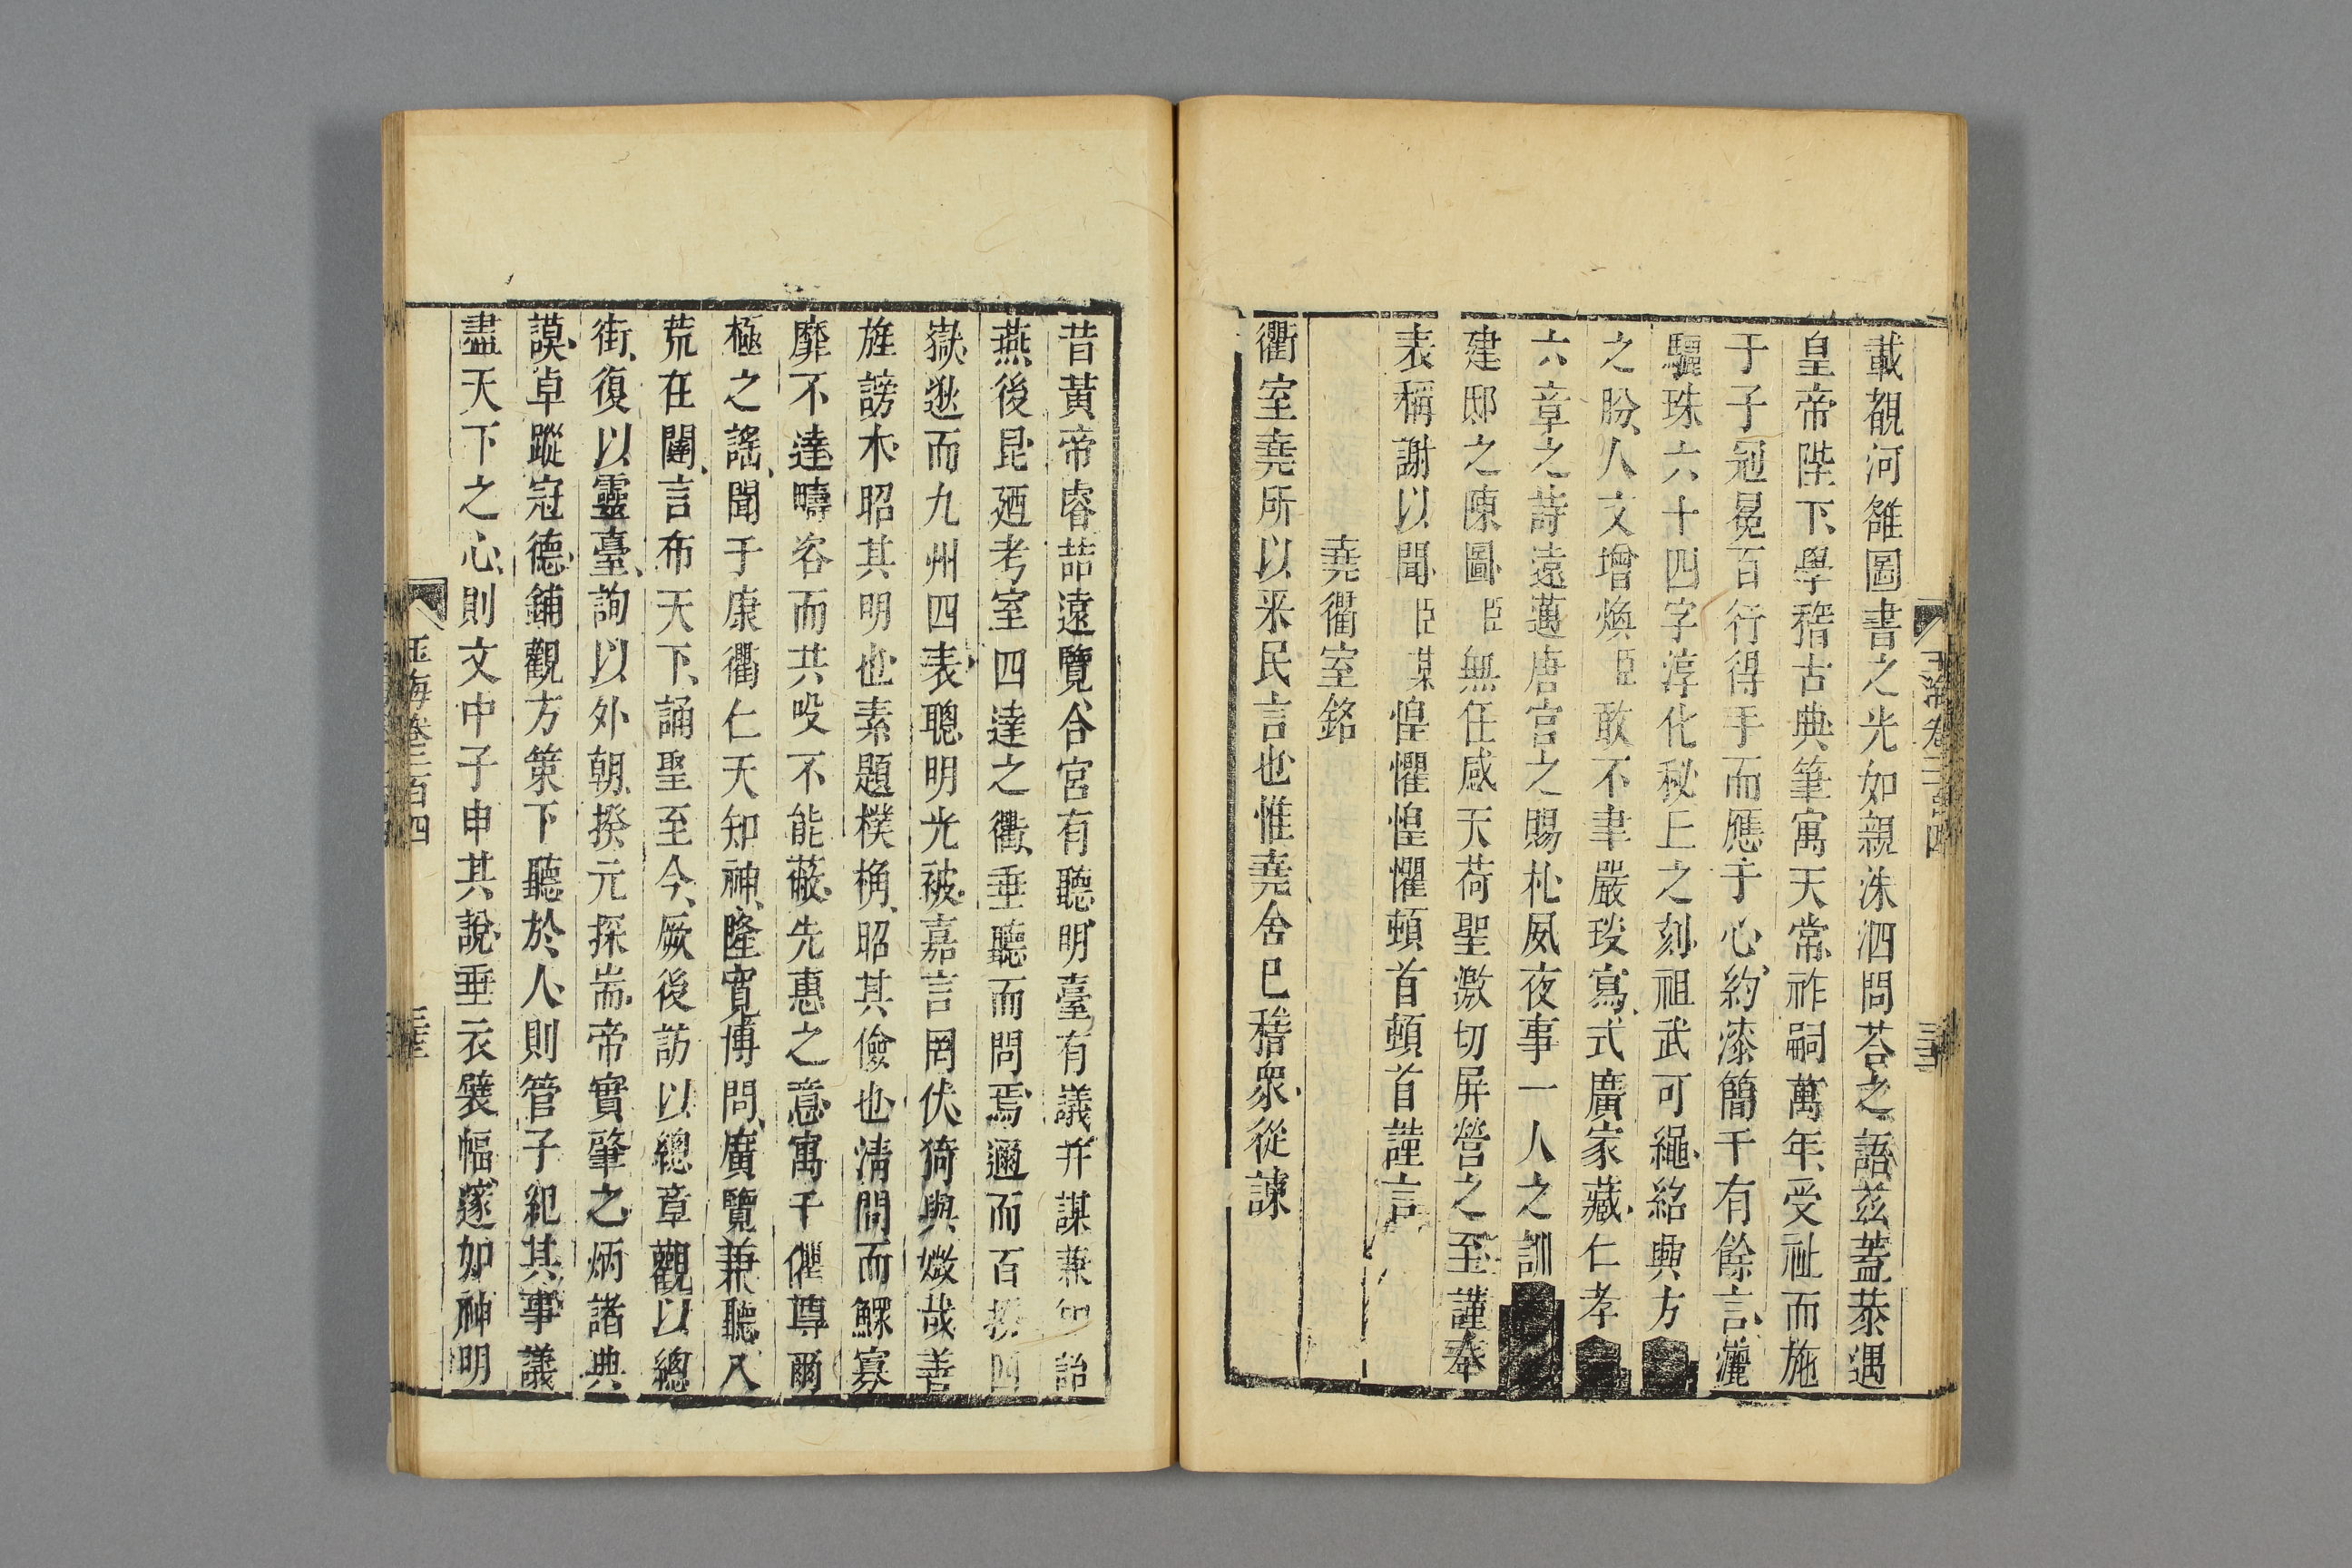 載覩河雒圖書之光如親洙泗問荅之語茲蓋恭遇
皇帝陛下學稽古典筆寓天常祚嗣萬年受祉而施
于子冠冕百行得手而應于心約漆簡千有餘言灑
驪珠六十四字淳化秘上之刻祖武可繩紹興方
之朌人文增煥臣敢不聿嚴琰寫式廣家藏仁孝
六章之詩遠邁唐宫之賜札夙夜事一人之訓
建邸之陳圖臣無任感天荷聖激切屏營之至謹奉
表稱謝以聞臣某惶懼惶懼頓首頓首謹言
堯衢室銘
衢室堯所以采民言也惟堯舍已稽衆從諫
昔黃帝睿喆遠覽合宮有聽明臺有議并謀兼詒
燕後昆廼考室四達之衢垂聽而問焉邇而百揆四
嶽逖而九州四表聰明光被嘉言罔伏猗與媺哉善
旌謗木昭其明也素題樸桷昭其儉也清問而鰥寡
靡不達疇咨而共吺不能蔽先惠之意寓于衢尊爾
極之謠聞于康衢仁天知神隆寬博問廣覽兼聽八
荒在闥言布天下誦聖至今厥後訪以總章觀以總
街復以靈臺詢以外朝揆元探耑帝實肇之炳諸典
謨卓蹤冠德鋪觀方策下聽於人則管子紀其事議
盡天下之心則文中子申其說垂衣襞幅邃如神明
玉海卷二百四